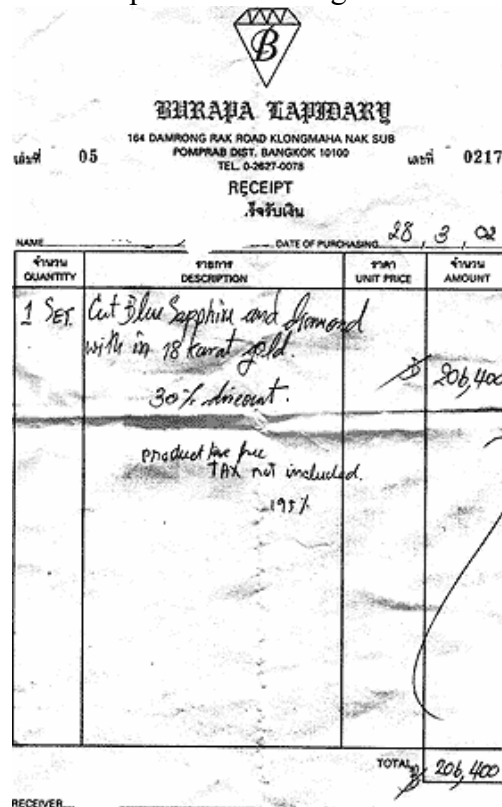 B
BURAPA LAPIDARY
164 DAMRONG RAK ROAD KLONGMAHA NAK SUB
POMPRAB DIST. BANGKOK 10100
TEL. 0-2627-0078
เล่มที่ 05 เลขที่ 0217
RECEIPT
NAME DATE OF PURCHASING 28, 3, 02
จำนวน รายการ ราคา จำนวน
QUANTITY DESCRIPTION UNIT PRICE AMOUNT
1 SET. Cut Blue Sapphire and diamond
with in 18 karat gold. 206,400
30% discount.
product free
TAX not included.
TOTAL 206,400
RECEIVER